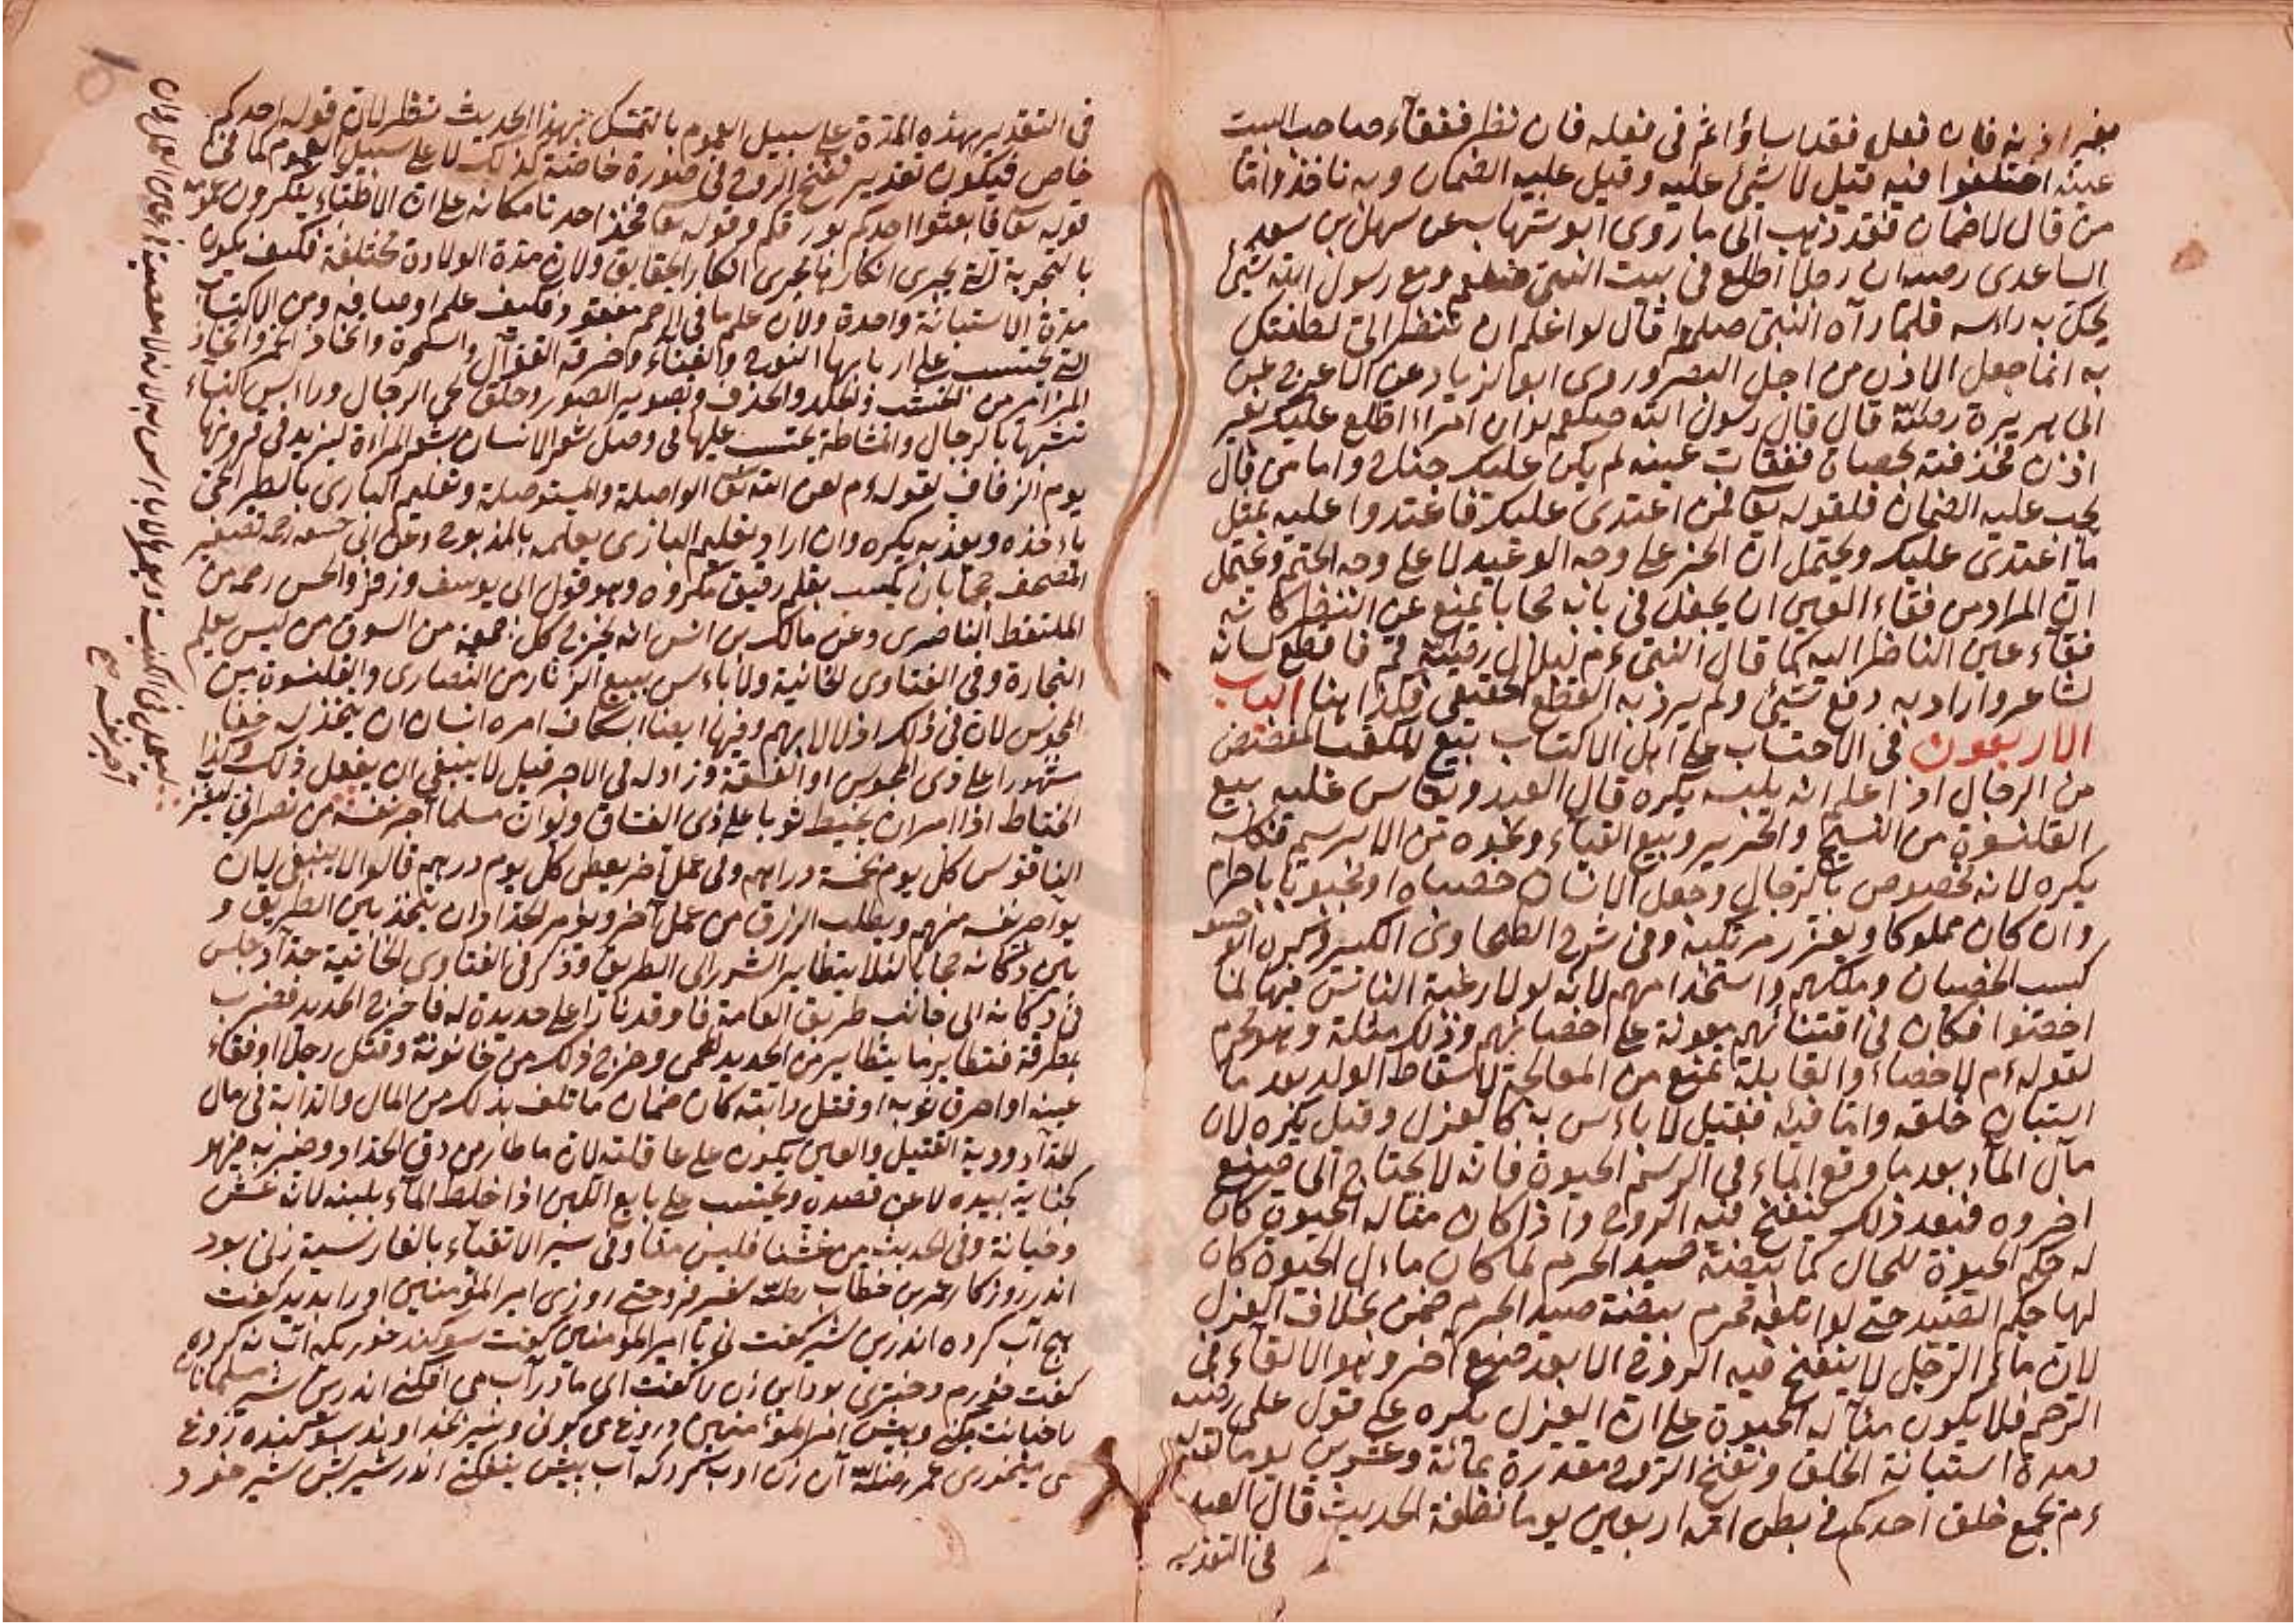 بغير اذنه فان فعل فقد اساؤ اثم في فعله فان نظر ففقآء صاحب البيت
عينه اختلفوا فيه قيل لا شيئ عليه وقيل عليه الضمان وبه نأخذ وامّا
من قال لا ضمان فقد ذهب الى ما روى ابو شهاب عن سهل بن سعد
الساعدى رضـ ان رجلا اطلع في بيت النبى صلعم ومع رسول الله شيئ
يحكّ به راسه فلمّا رآه النبىّ صلعم قال لو اعلم ان تنظر الىّ لطعنتك
به انما جعل الاذن من اجل البصر وروى ابو الزياد عن الاعرج عن
ابى هريرة رضـ قال قال رسول الله صلعم لو ان امراء اطلع عليك بغير
اذن فخذفته بحصاة ففقات عينه لم يكن عليك جناح واما من قال
يجب عليه الضمان فلقوله تعالى فمن اعتدى عليك فاعتدوا عليه بمثل
ما اعتدى عليك ويحتمل ان الخبر على وجه الوعيد لا على وجه الحتم ويحتمل
ان المراد من فقاء العين ان يجعل في بابه حجابا يمنع عن النظر كانه
فقاء عين الناظر اليه كما قال النبى ءم لبلال رضـ قم فاقطع لسانه
لشاعر واراد به دفع شيئ ولم يرد به القطع الحقيقى فكذا هنا الباب
الاربعون في الاحتساب على اهل الاكتساب بيع المكعب المفضض
من الرجال اذا علم انه يلبسه يكره قال العبد ويقاس عليه بيع
القلنسوة من النسيج والحرير وبيع القباء ونحوه من الابريسم فكله
يكره لانه مخصوص بالرجال وجعل الانسان خصيا او مجبوبا حرام
وان كان مملوكا ويعزر مرتكبه وفي شرح الطحاوى الكبير ويكره
كسب الخصيان وملكهم واستخدامهم لانه لولا رغبة الناس فيها لما
اخصّوا فكان في اقتنائهم معونة على اخصائهم وذلك مثلة وهو محرم
لقوله ءم لا خصاء والقابلة تمنع من المعالجة لاسقاط الولد بعد ما
استبان خلقه وامّا قبله فقيل لا باءس به كالعزل وقيل يكره لان
مآل الماء بعد ما وقع الماء في الرحم الحيوة فانه لا يحتاج الى صنع
آخر وه فبعد ذلك ينفخ فيه الروح واذا كان مآله الحيوة كان
له حكم الحيوة للحال كما بيضة صيد الحرم لما كان مال الحيوة كان
لها حكم الصيد حتى لو اتلف محرم بيضة صيد الحرم ضمن بخلاف العزل
لان ماء الرجل لا ينفخ فيه الروح الا بعد صنع آخر وهو الالقاء في
الرحم فلا يكون مآله الحيوة على ان العزل يكره على قول على رضـ
ومدة استبانة الخلق ونفخ الروح مقدرة بمائة وعشرين يوما لقوله
ءم يجمع خلق احدكم في بطن امه اربعين يوما نطفة الحديث قال العبد
في التقدير
في التقدير بهذه المدة على سبيل العموم بالتمسّك بهذا الحديث نظر لان قوله احدكم
خاص فيكون تقدير نفخ الروح في صورة خاصة كذلك لا على سبيل العموم كما في
قوله تعا فابعثوا احدكم بورقكم وقوله تعا فخذ احدنا مكانه على ان الاطباء ينكرون
بالتجربة التى يجرى انكارها مجرى انكار الحقايق ولان مدة الولادة مختلفة فكيف يكون
مدة الاستبانة واحدة ولان علم ما في الرحم مفقود فكيف علم اوصافه ومن الاكتساب
التى يحتسب على اربابها النوح والغناء وحرفة القوّال والسّحرة واتخاذ الخمر واتخاذ
المزامر من الخشب والجلد والخذف وتصوير الصور وحلق لحى الرجال وراءس النساء
تشبّها بالرجال والمشاطة يحتسب عليها في وصل شعر الانسان بشعر المراءة ليزيد في قرونها
يوم الزفاف لقوله ءم لعن الله تعا الواصلة والمستوصلة وتعليم البازى بالطير الحىّ
ياءخذه ويعذبه يكره وان اراد تعليم البازى يعلمه بالمذبوح وعن ابى حنيفة رحمه تصغير
المصحف حجما بان يكتب بقلم رقيق مكروه وهو قول ابى يوسف وزفر والحسن رحمه من
الملتقط الناصرى وعن مالك بن انس انه يخرج كل جمعة من السوق من ليس يعلم
التجارة وفي الفتاوى الخانية ولا باءس ببيع الزنّار من النصارى والقلنسوة من
المجوس لان في ذلك اذلالا بهم وفيها ايضا اسكاف امره انسان ان يتخذ له خفا
مشهورا على زى المجوس او الفسقة وزاد له في الاجر قيل لا ينبغى ان يفعل ذلك وكذا
الخياط اذا امر ان يخيط ثوبا على زى الفساق ولو ان مسلما آجر نفسه من نصرانى ليضرب
الناقوس كل يوم بخمسة دراهم وفى عمل آخر يعطى كل يوم درهم قالوا لا ينبغى له ان
يوآجر نفسه منهم ويطلب الرزق من عمل آخر ويؤمر الحدّاد ان يتخذ بين الطريق و
بين دكانه حجابا لئلا يتطاير الشرر الى الطريق وذكر في الفتاوى الخانية حدّاد جلس
في دكانه الى جانب طريق العامة فاوقد نارا على حديدة له فاخرج الحديد فضرب
بمطرقة فتطاير ما يتطاير من الحديد المحمى وخرج ذلك من حانوته وقتل رجلا او فقاء
عينه او احرق ثوبه او قتل دابته كان ضمان ما تلف بذلك من المال والدابة في مال
الحدّاد ودية القتيل والعين يكون على عاقلته لان ما طار من دق الحداد وضربه فهو
كجناية بيده لا عن قصده ويحتسب على بايع اللبن اذا خلط الماء بلبنه لانه غش
وخيانة وفي الحديث من غشّنا فليس منّا وفي سير الاتقياء بالفارسية زنى بود
اندر روزكار عمر بن خطاب رضـ شير فروختى روزى امير المؤمنين اورا بديد كفت
هيچ آب كرده اندرين شير كفت نى يا امير المؤمنين كفت سوكند خور كه آب نكرده
كفت خورم دخترى بود اين زن را كفت اى مادر آب مى افكنى اندرين شير مسلمانان
با خيانت ميكنى و پيش امير المؤمنين دروغ مى كوئى و نيز بخداوند سوكند دروغ
مى ميخورى عمر رضـ آن زن ادب كرد كه آب بيش نيفكنى اندر شير پس شير خورد
آجر نفسه صح